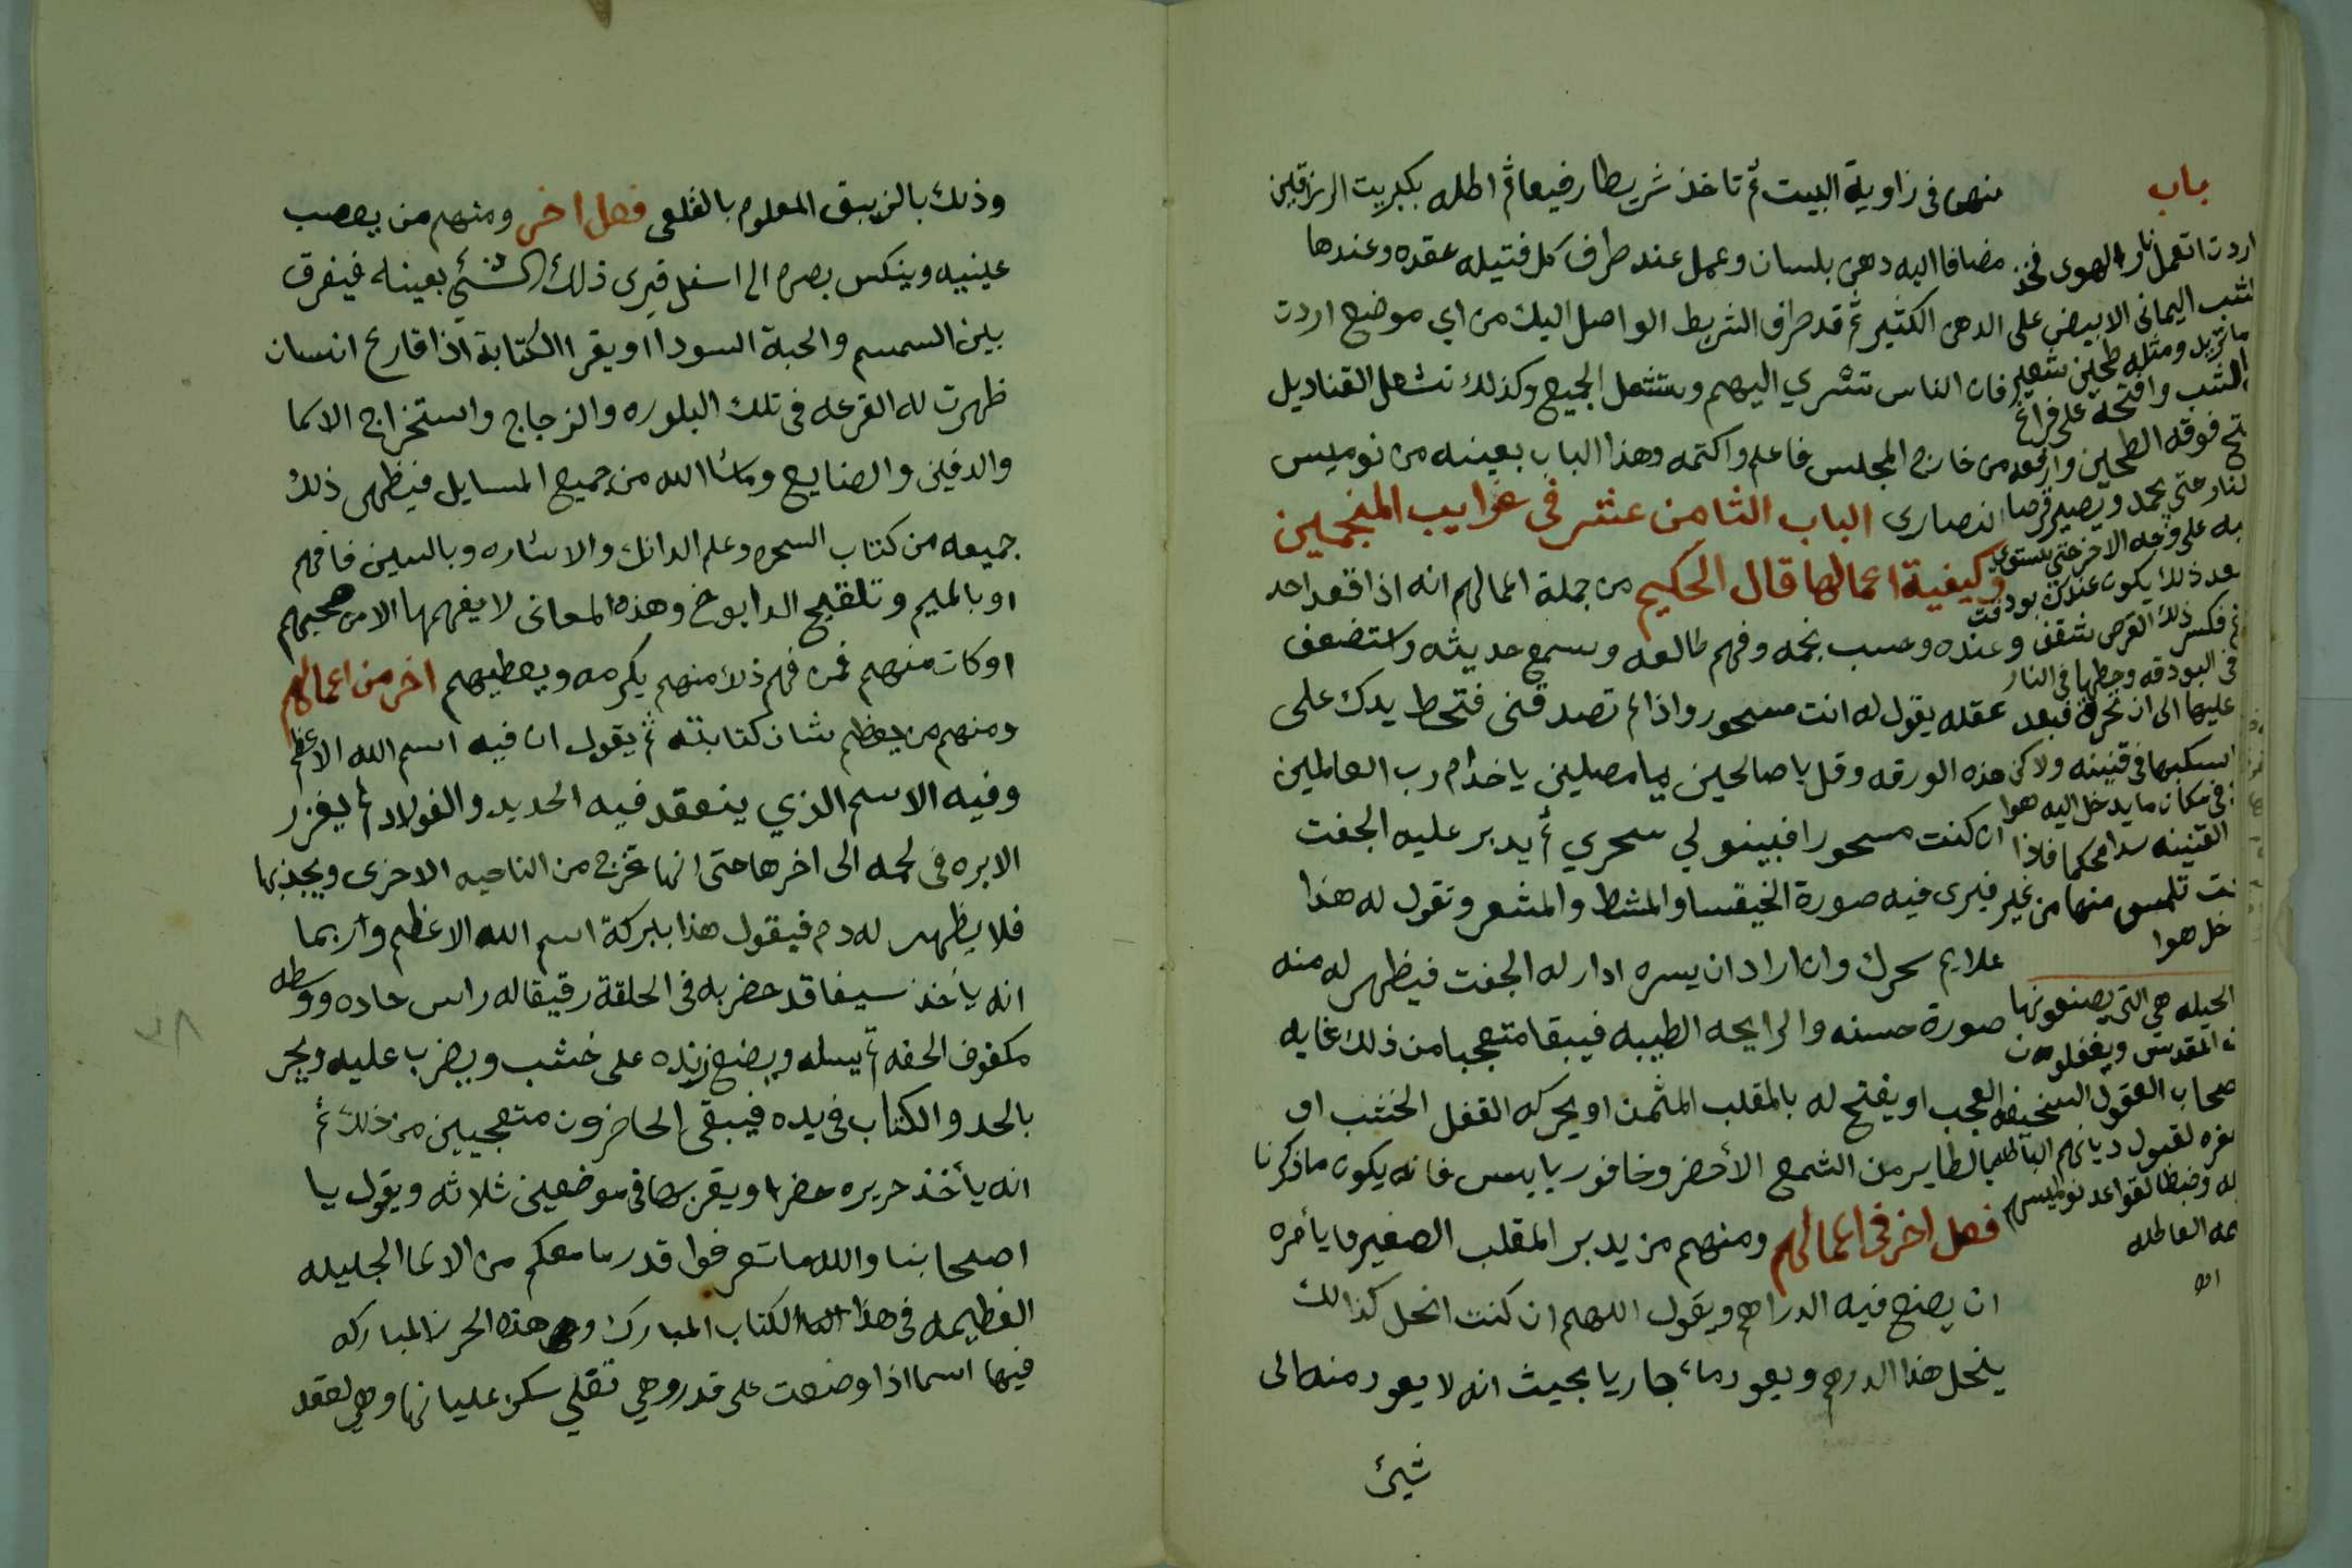 منهما فى زاوية البيت ثم تاخذ شريطا رفيعا ثم اطله بكبريت الزراقين
مضافا اليه دهن بلسان وعمل عند طرف كل فتيله عقده وعندها
على الدهن الكثير ثم قد طرف الشريط الواصل اليك من اي موضع اردت
فان الناس تسري اليهم وتشتعل الجميع وكذلك تشعل القناديل
من خارج المجلس فاعلم واكتمه وهذا الباب بعينه من نوميس
النصارى الباب الثامن عشر فى غرايب المنجمين
وكيفية اعمالها قال الحكيم من جملة اعمالهم انه اذا قعد احد
عنده وحسب نجمه وفهم طالعه وسمع حديثه واستضعف
عقله يقول له انت مسحور واذا لم تصدقنى فتحط يدك على
هذه الورقه وقل يا صالحين يا مصلين يا خدام رب العالمين
ان كنت مسحورا فبينو لي سحري ثم يدبر عليه الجفت
فيرى فيه صورة الخيفسا والمشط والمشعر وتقول له هذا
علايم سحرك وان اراد ان يسره ادار له الجفت فيظهر له منه
صورة حسنه والرايحه الطيبه فيبقا متعجبا من ذلك غايه
العجب او يفتح له بالمقلب المثمن او يحركه القفل الخشب او
بالطاير من الشمع الأحضر وخافور يابس فانه يكون ما ذكرنا
فصل اخر فى اعمالهم ومنهم من يدبر المقلب الصغير ما يأمره
ان يضع فيه الدراهم ويقول اللهم ان كنت انحل كذالك
ينحل هذا الدرهم ويعود ماء جاريا بحيث انه لا يعود منه الى
شيئ
باب
اردت اتعمل نار الهوى فخذ
الشب اليمانى الابيض
ما تريد ومثله طحين شعير
الشب وافتحه على فراغ
فوقه الطحين وارفعه
النار حتى يجمد ويصير قرصا
به على وجه الاخر حتى يستوى
بعد ذلك يكون عندك بودقت
فكسر ذلك القرص شقف
فى البودقه وحطها فى النار
عليها الى ان تحرق فبعد
اسكبها فى قنينه ولا كن
فى مكان ما يدخل اليه هوا
القنينه سدا محكما فاذا
تلمس منها من غير
خل هوا
الحيله هى التى يصنعونها
المقدس ويغفلون
صحاب العقول السخيفه
لقبول ديانهم الباطله
وضبطا لقواعد نواميسهم
العاطله
وذلك بالزيبق المعلوم بالقلعى فصل اخر ومنهم من يعصب
عينيه وينكس بصره الى اسفل فيرى ذلك الشئ بعينه فيفرق
بين السمسم والحبة السودا او يقرا الكتابة اذا قارع انسان
ظهرت له القرعه فى تلك البلوره والزجاج واستخراج الاسما
والدفين والضايع وماشا الله من جميع المسايل فيظهر ذلك
جميعه من كتاب السحره وعلم الدانك والاشاره وبالسين فافهم
او بالميم وتلقيح الدابوخ وهذه المعانى لا يفهمها الا من صحبهم
او كان منهم فمن فهم ذلك منهم يكرمه ويعطيهم اخر من اعمالهم
ومنهم من يعظم شان كتابته ثم يقول ان فيه اسم الله الاعظم
وفيه الاسم الذي ينعقد فيه الحديد والفولاد ثم يغزر
الابره فى لحمه الى اخرها حتى انها تخرج من الناحيه الاخرى ويجذبها
فلا يظهر له دم فيقول هذا ببركة اسم الله الاعظم واربما
انه ياخذ سيفا قد حضر به فى الحلقة رقيقا له راس حاده ووسطه
مكفوف الحفه ثم يسله ويضع زنده على خشب ويضرب عليه ويجر
بالحد والكتاب فى يده فيبقى الحاضرون متعجبين من ذلك ثم
انه يأخذ حريره خضرا ويقرضها فى موضعين ثلاثه ويقول يا
اصحابنا والله ما تعرفوا قدر ما معكم من الاسما الجليله
العظيمه فى هذا الكتاب المبارك وهى هذه الحرز المباركه
فيها اسما اذا وضعت على قدر وهي تغلي سكن غليانها وهى لعقد